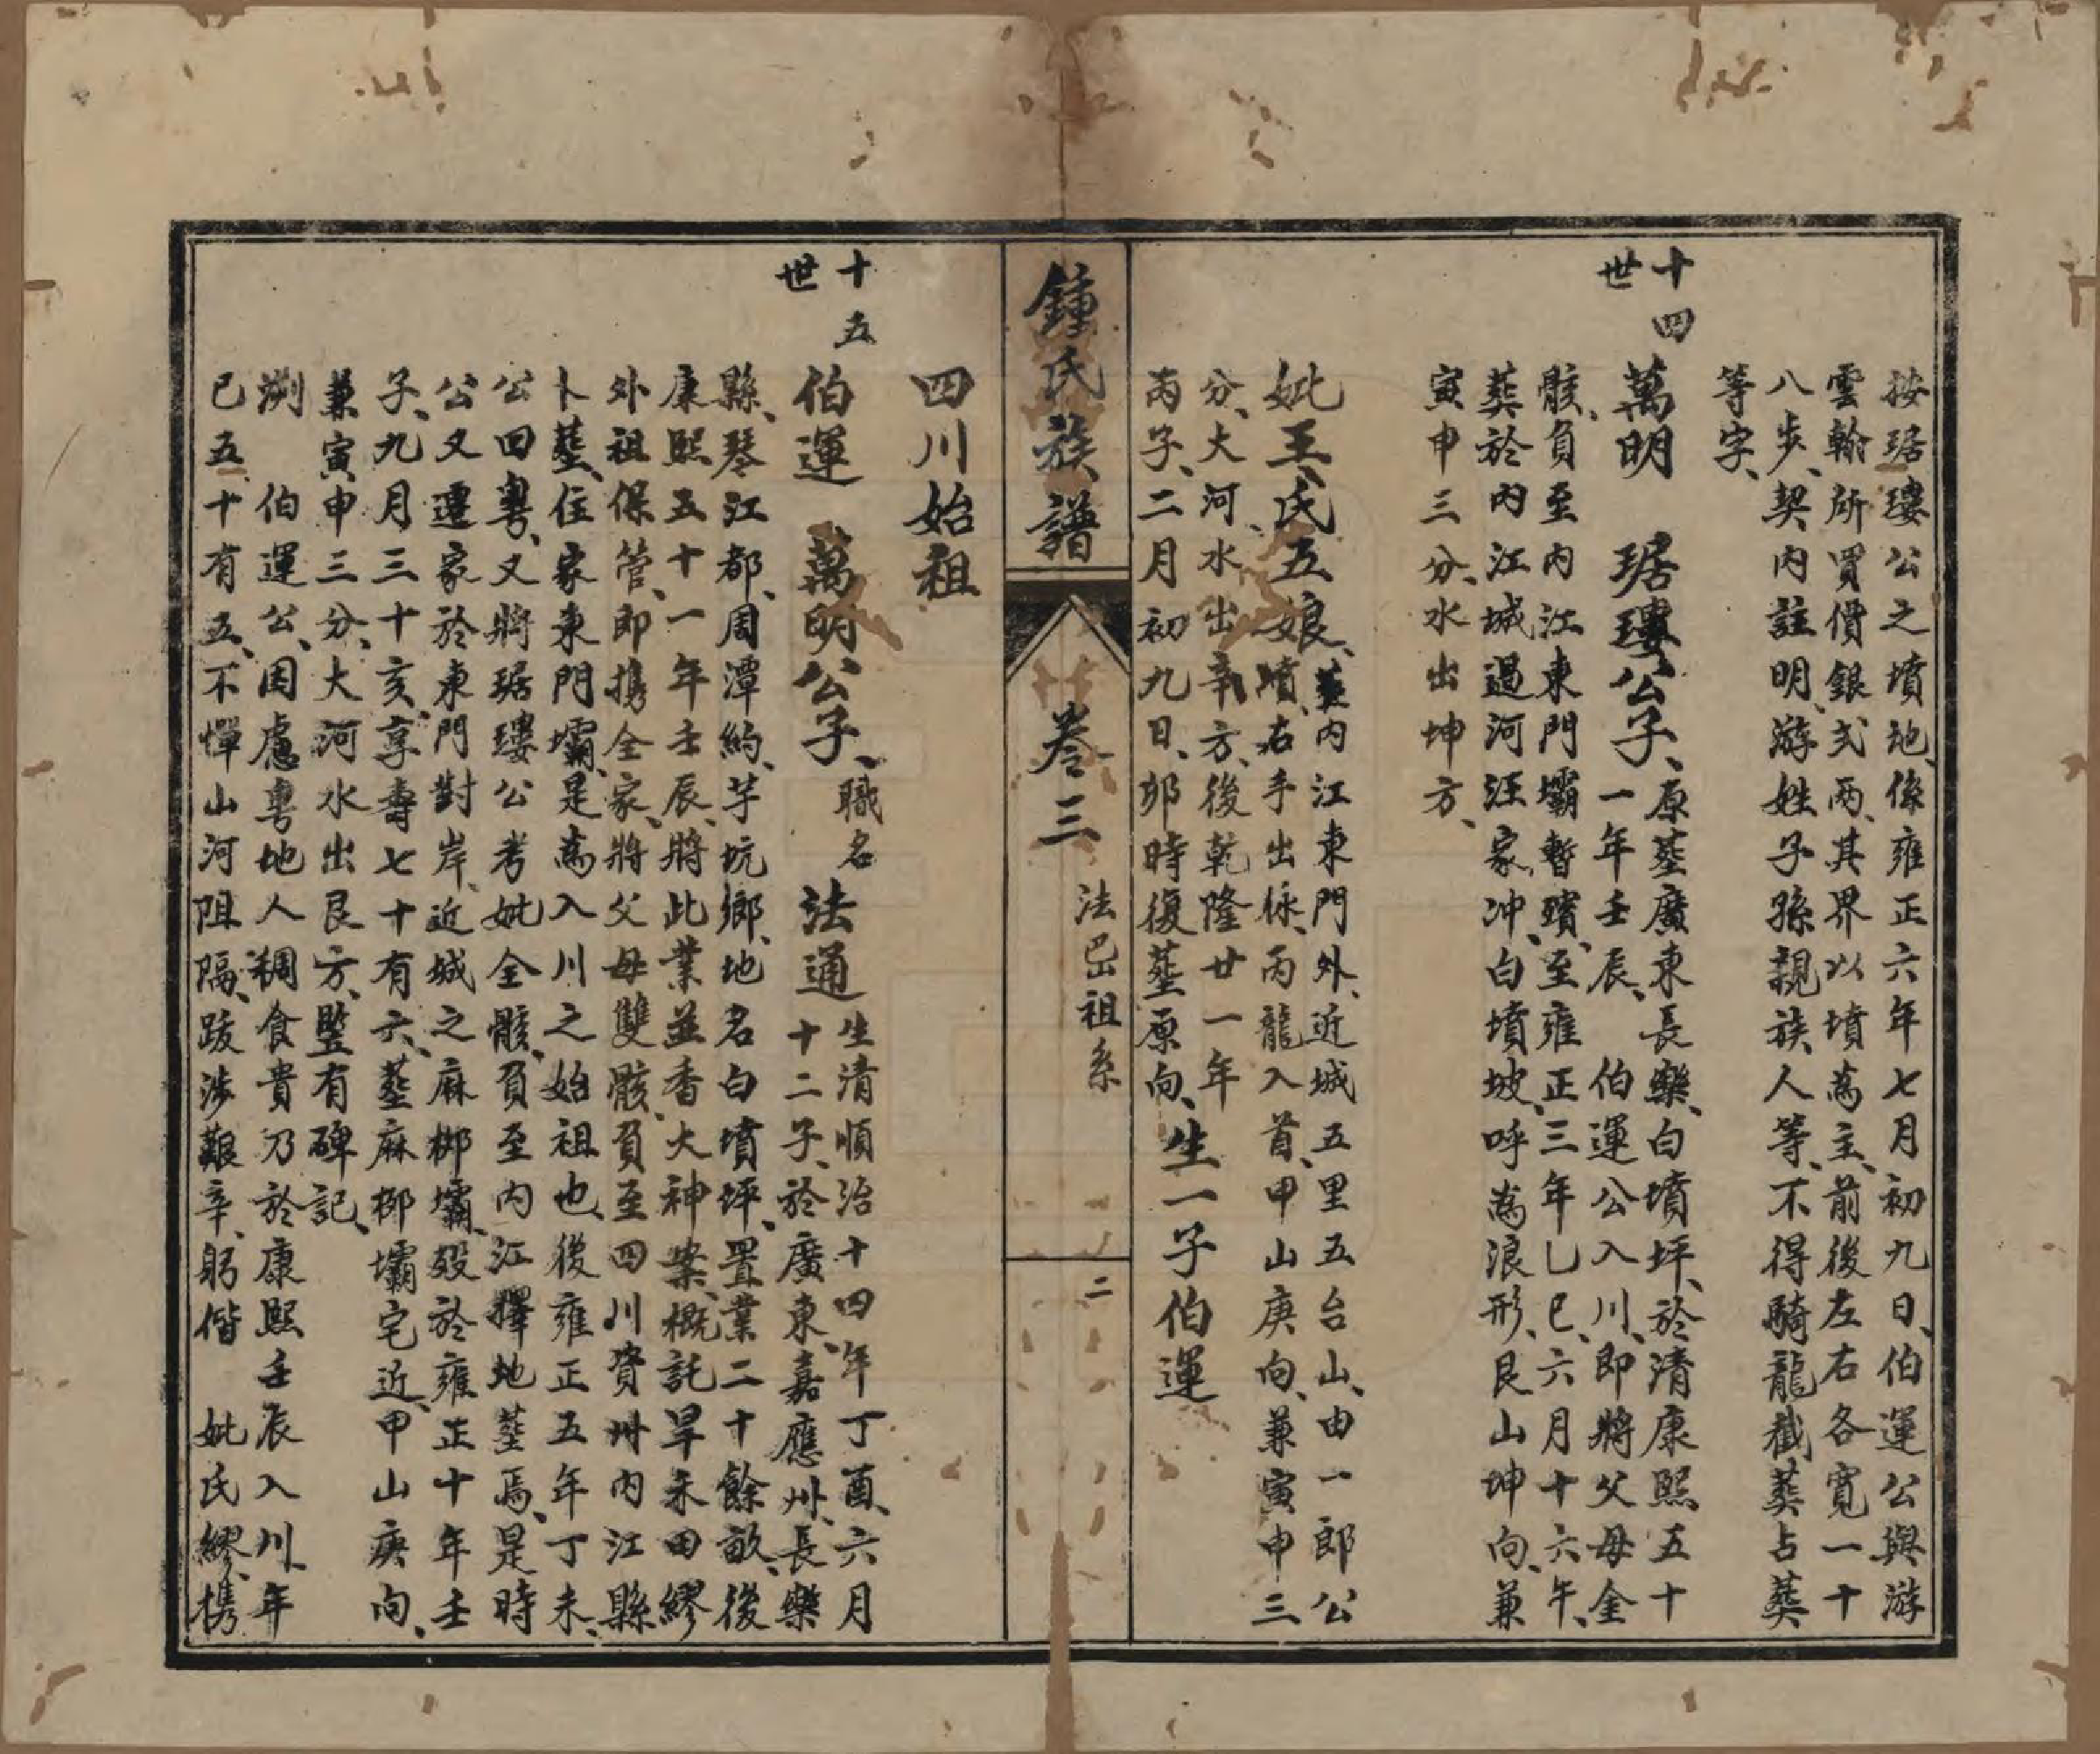 按琚瓊公之墳地、係雍正六年七月初九日、伯運公與游
雲翰所買價銀弍兩、其界以墳為主、前後左右各寬一十
八步、契内註明、游姓子孫親族、人等、不得騎龍截葬占葬
等字、
十四世
萬明 琚瓊公子、原塟廣東長樂、白墳坪、於清康熙五十
一年壬辰、 伯運公入川、即將父母金
骸、負至内江東門壩暫殯、至雍正三年乙巳、六月十六午、
葬於内江城過河汪家冲、白墳坡、呼為浪形、艮山坤向、兼
寅申三分、水出坤方、
妣王氏五娘、塟内江東門外、近城五里五台山、由一郎公
墳、右手出脉、丙龍入首、甲山庚向、兼寅申三
分、大河、水出辛方、後乾隆廿一年
丙子、二月初九日、卯時復塟原向、生一子伯運
鍾氏族譜
卷三
法巴祖系
二
四川始祖
十五世
伯運 萬明公子、職名法通 生清順治十四年丁酉、六月
十二子、於廣東、嘉應州、長樂
縣、琴江都、周潭約、芋坑鄉、地名白墳坪、置業二十餘畝、後
康熙五十一年壬辰、將此業並香火神案、概託早禾田繆
外祖保管、即携全家、將父母雙骸、負至四川資州内江縣、
卜塟、住家東門壩、是為入川之始祖也、後雍正五年丁未、
公回粵、又將琚瓊公考妣全骸、負至内江擇地塟焉、是時
公又遷家於東門對岸、近城之麻柳壩、殁於雍正十年壬
子、九月三十亥、享壽七十有六、塟麻柳壩宅近、甲山庚向、
兼寅申三分、大河水出艮方、監有碑記、
測 伯運公、因慮粵地人稠食貴乃於康熙壬辰入川、年
已五十有五、不憚山河阻隔、跋涉艱辛、躬偕 妣氏繆、携